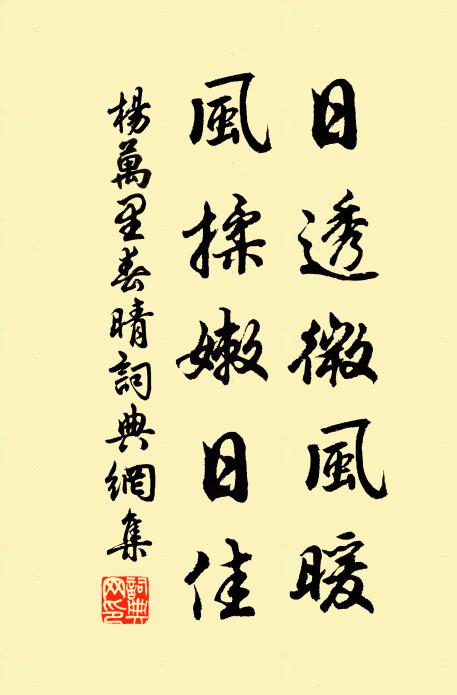 日透微風暖
風揉嫩日佳
楊萬里春晴詞典網集
詞典網印